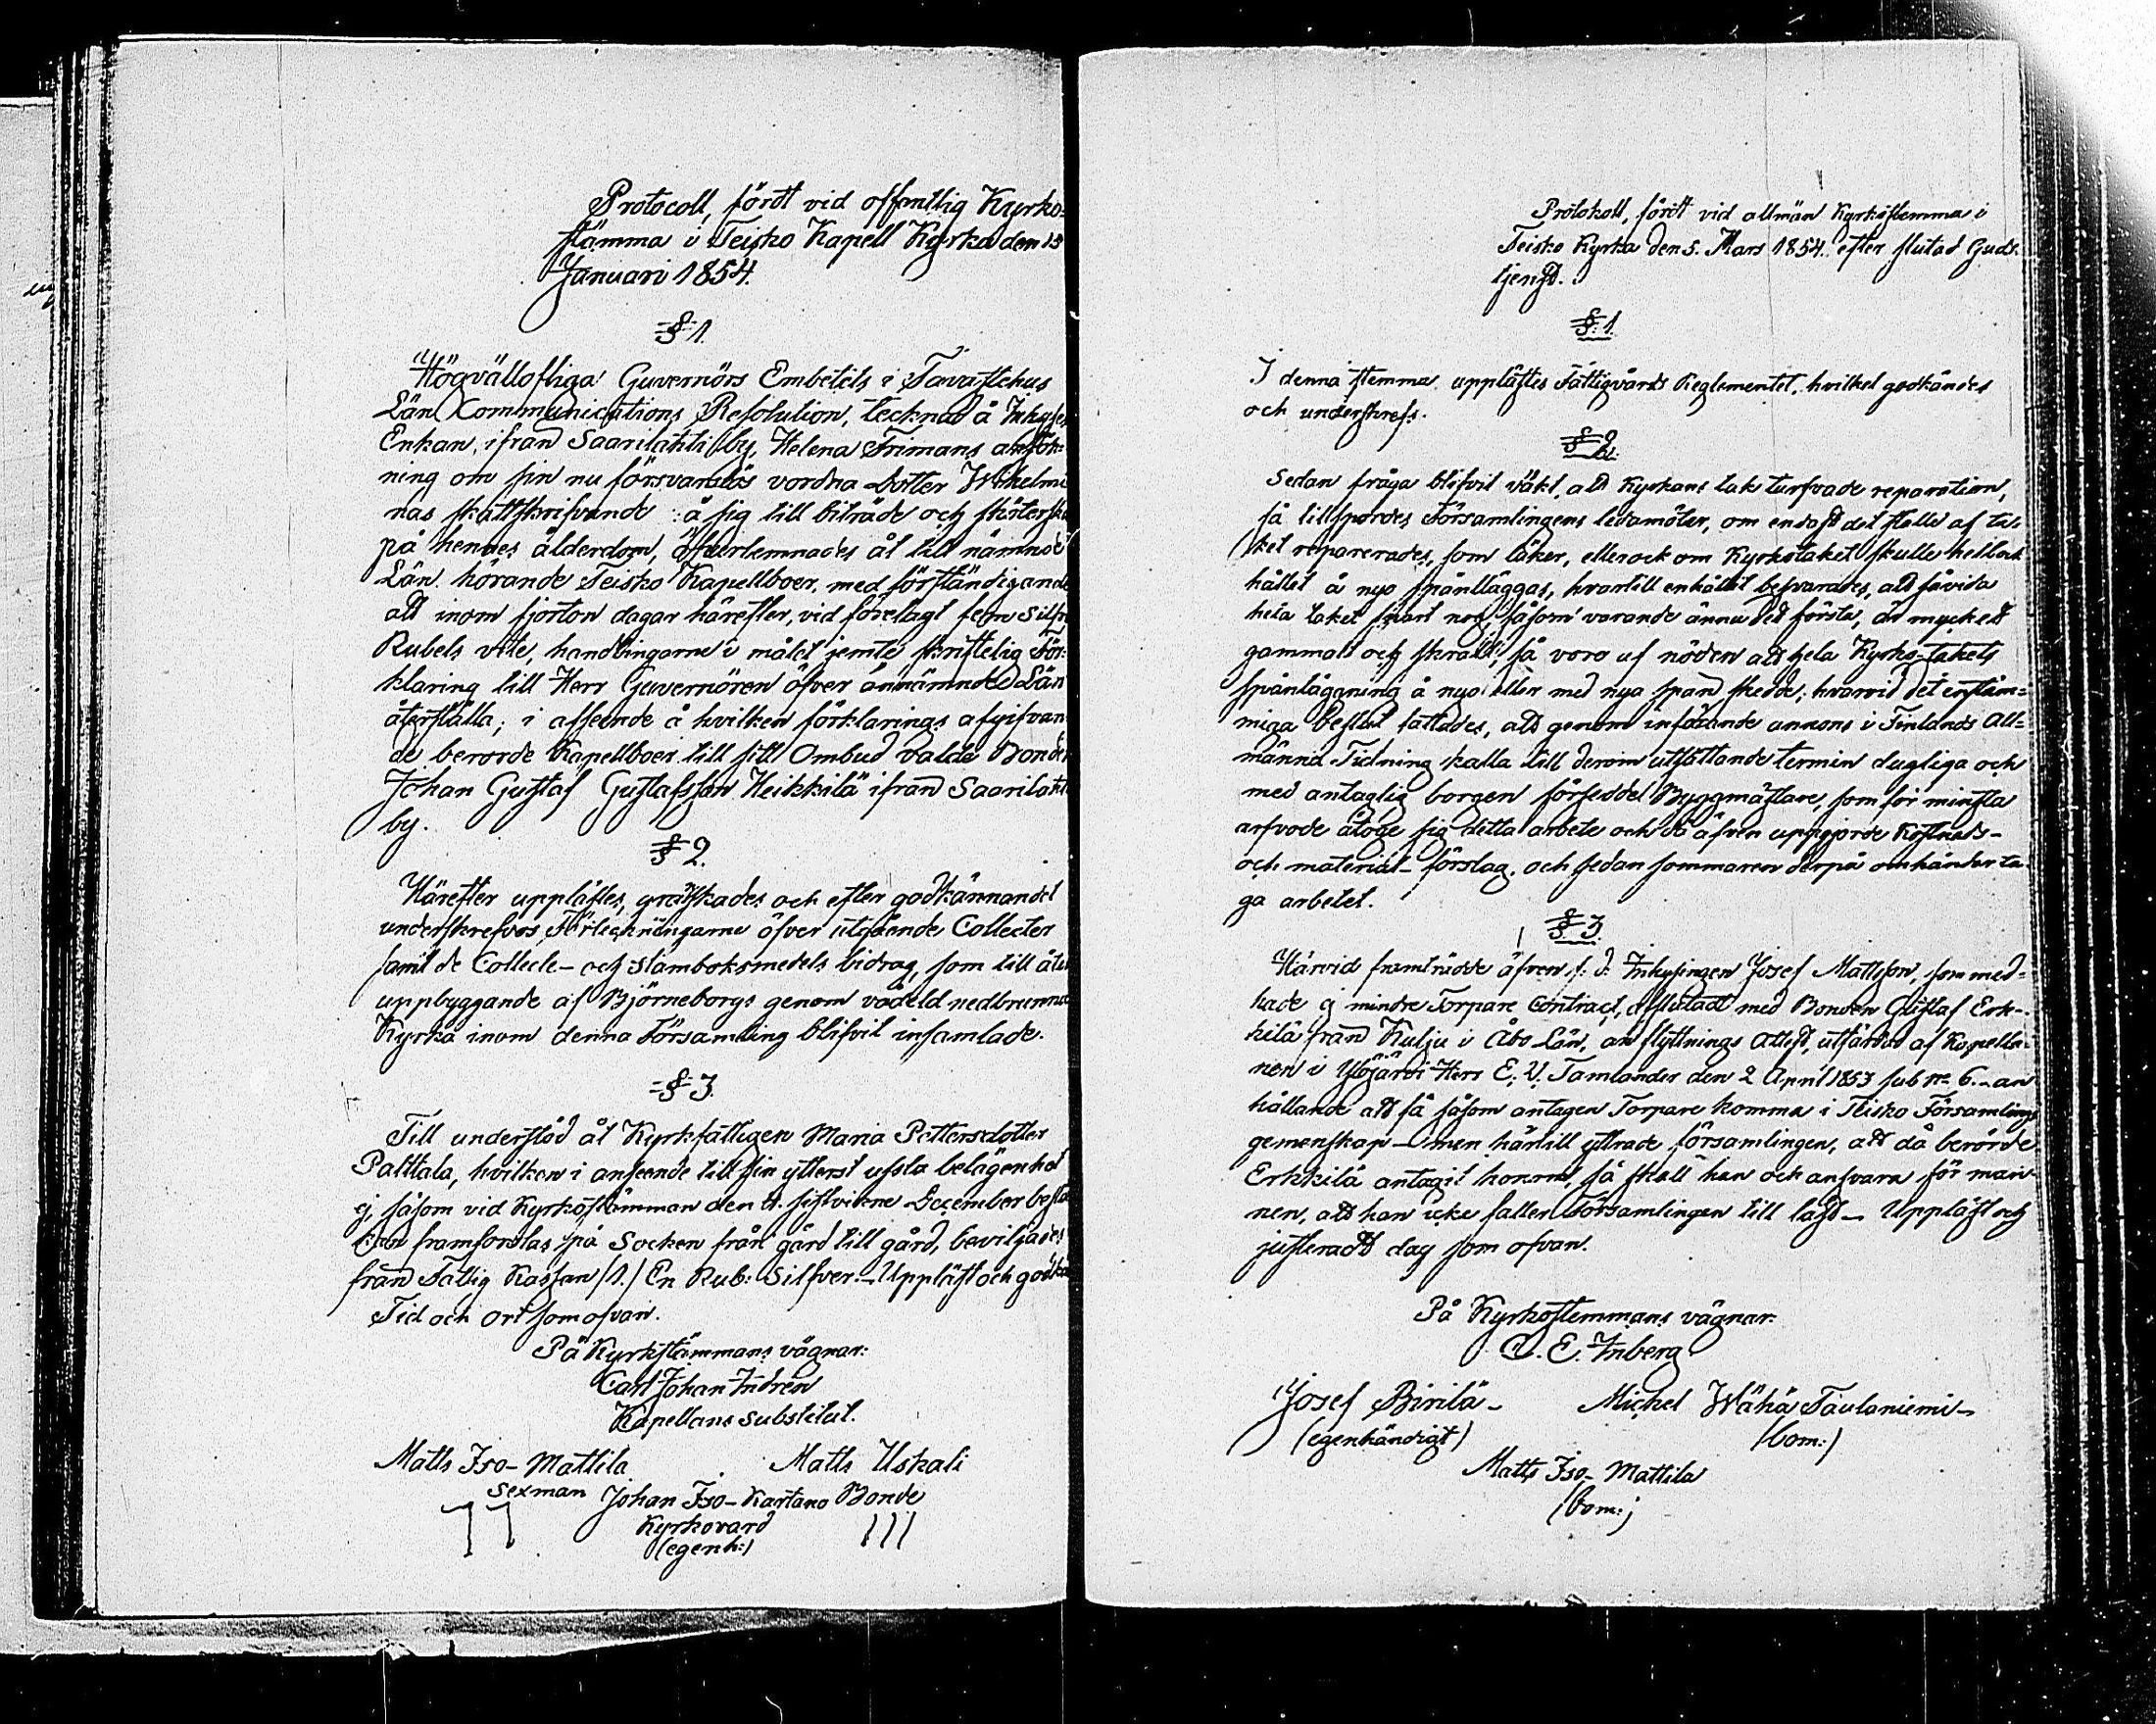 Protocoll, fördt vid offentlig Kyrko-
stämma i Teisko Kapell Kyrka den 15
Januari 1854.
§ 1.
Högvällofliga Guvernörs Embetets i Tavastehus
Län Communications Resolution, tecknad å Inhyses
Enkan, ifrån Saarilahti by, Helena Frimans ansök-
ning om sin nu försvarslös vordna dotter Wilhelmi
nas skattskrifvande å sig till biträde och sköterska
på hennes ålderdom, öfverlemnades åt till nämnde
Län hörande Teisko Kapellboer, med förständigande
att inom fjorton dagar härefter, vid förelagt fem Silfver
Rubels vite, handlingarne i målet jemte skriftelig För-
klaring till Herr Guvernören öfver ännämnde Län
återställa; i afseende å hvilken förklarings afgifvan
de berörde Kapellboer till sitt Ombud valde Bonden
Johan Gustaf Gustafsson Heikkilä ifrån Saarilahti
by.
§ 2.
Härefter upplästes, granskades och efter godkännandet
underskrefvos Förteckningarne öfver utgående Collecter
samt de Collecte- och stamboksmedels bidrag, som till åter
uppbyggande af Björneborgs genom vådeld nedbrunna
Kyrka inom denna Församling blifvit insamlade.
§ 3.
Till understöd åt Kyrkfattigen Maria Pettersdotter
Palttala, hvilken i anseende till sin ytterst usla belägenhet
ej, såsom vid Kyrkostämman den 4. sistvikne December beslöts
kan framforslas på Socken från gård till gård, beviljades
från Fattig Kassan /1./ En Rub: Silfver. _ Uppläst och godkänd
Tid och ort som ofvan.
På Kyrkstämmans vägnar:
Carl Johan Indrén
Kapellans substitut.
Matts Iso-Mattila Matts Uskali
sexman Johan Iso-Kartano Bonde
Kyrkovard
(egenh:)
Protokoll, fördt vid allmän Kyrkostemma i
Teisko Kyrka den 5. Mars 1854. efter slutad Guds-
tjenst.
§. 1.
I denna stemma upplästes Fattigvårds Reglementet, hvilket godkändes
och underskrefs.
§ 2.
Sedan fråga blifvit väkt, att Kyrkans tak tarfvade reparation,
så tillspordes Församlingens ledamöter, om endast det ställe af ta-
ket reparerades, som läker, eller ock om Kyrkotaket skulle helt och
hållet å nyo spånläggas, hvartill enhälligt besvarades, att såvida
hela taket snart nog, såsom varande ännu det första, är mycket
gammalt och skralt, så vore af nöden att hela Kyrko-takets
spånläggning å nyo eller med nya spån skedde; hvarvid det enstäm-
miga beslut fattades, att genom införande annons i Finlands All-
männa Tidning kalla till derom utsättande termin dugliga och
med antaglig borgen försedde Byggmästare, som för minsta
arfvode åtoge sig detta arbete och då äfven uppgjorde Kostnads-
och material-förslag, och sedan sommaren derpå omhänderta
ga arbetet.
§. 3.
Härvid framträdde äfven f. d. Inhysingen Josef Mattsson, som med-
hade ej mindre Torpare Contract, afslutadt med Bonden Gustaf Erk-
kilä från Kulju i Åbo Län, än flyttnings attest, utfärdad af Kapella-
nen i Ylöjärvi Herr E. V. Tamlander den 2 April 1853 sub No 6. _ an
hållande att få såsom antagen Torpare komma i Teisko Församlings
gemenskap _ men härtill yttrade församlingen, att då berörde
Erkkilä antagit honom, så skall han och ansvara för man-
nen, att han icke faller Församlingen till last _ Uppläst och
justeradt dag som ofvan.
På Kyrkostemmans vägnar:
C. E. Inberg
Josef Birilä - Michel Wähä Taulaniemi -
(egenhändigt) (bom:)
Matts Iso-Mattila
(bom:)